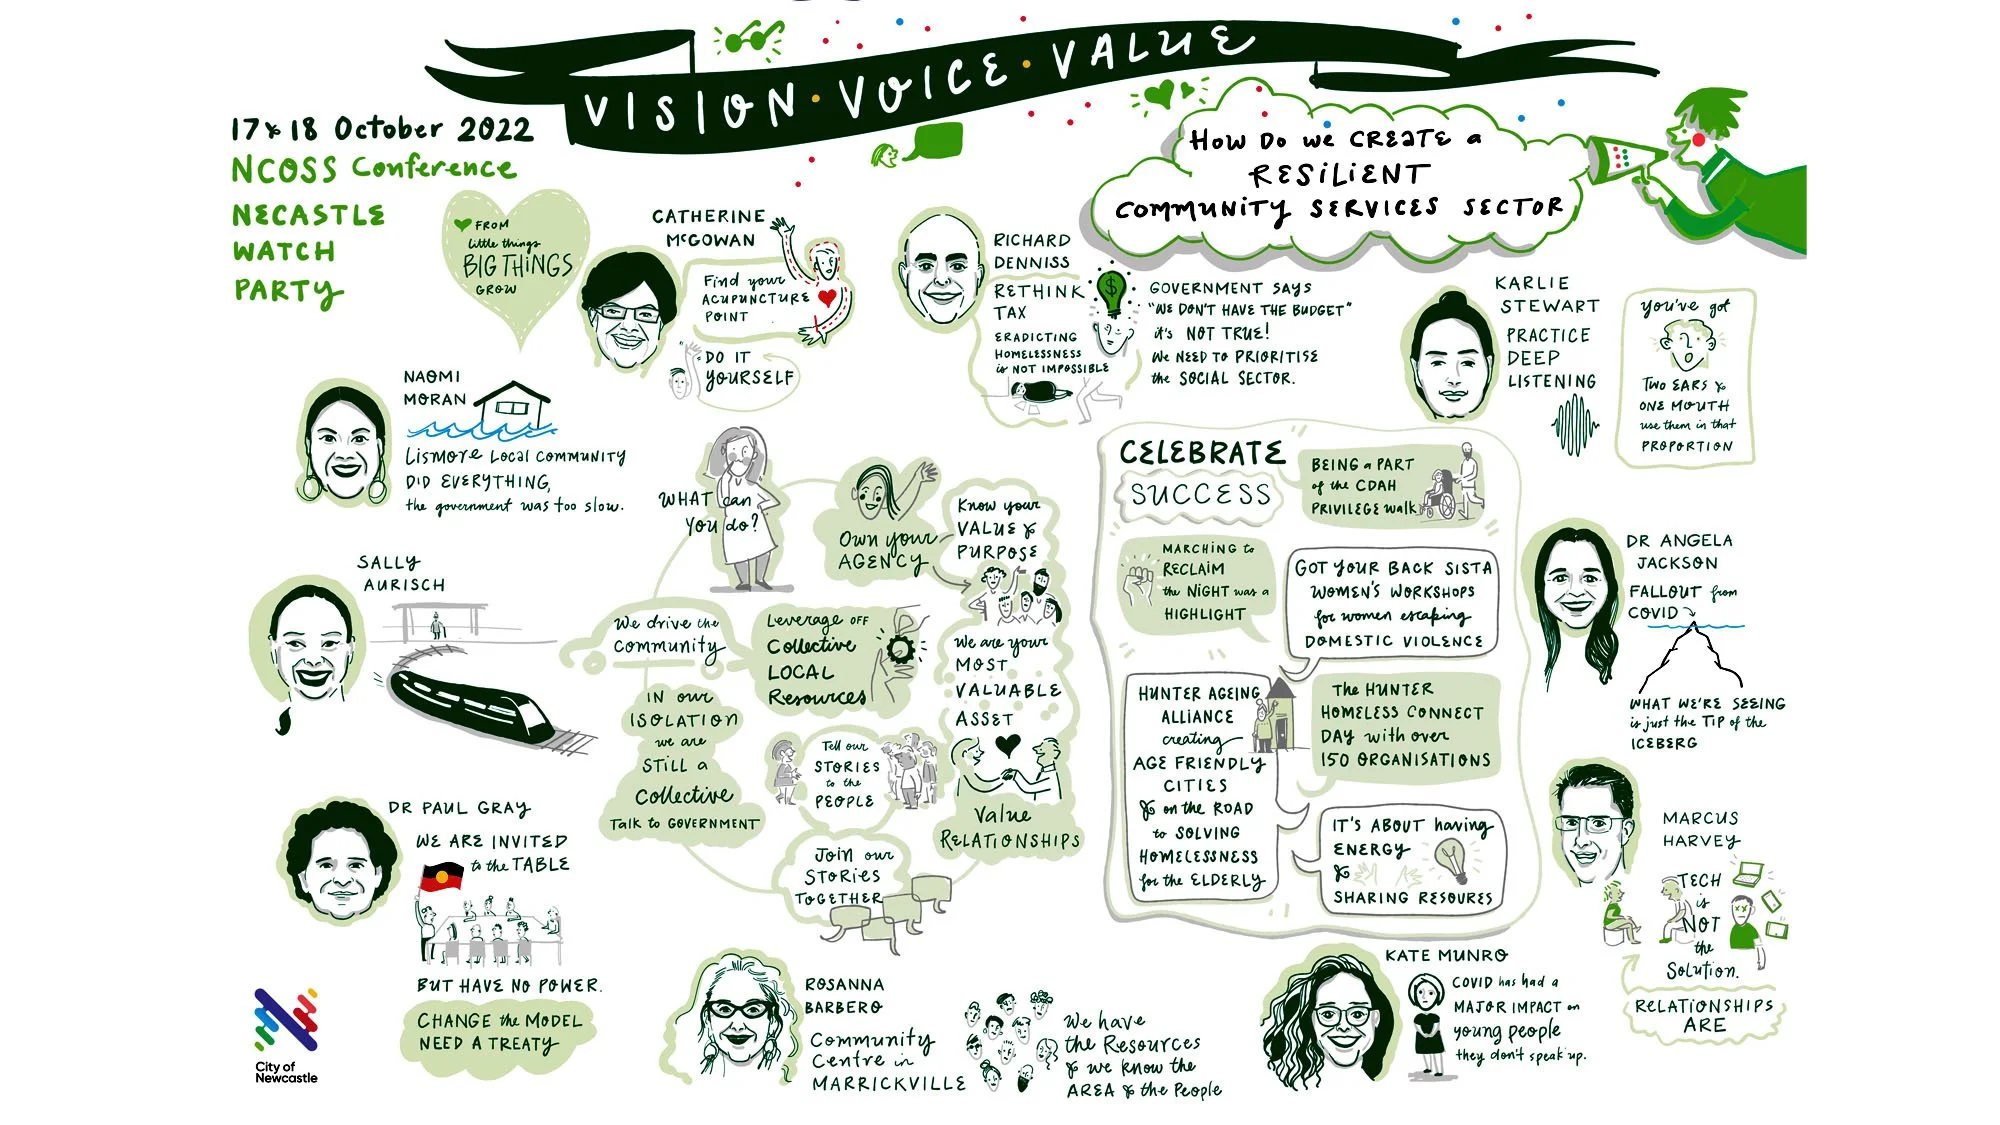 VISION · VOICE · VALUE
17 & 18 October 2022
NCOSS Conference
NECASTLE
WATCH
PARTY
HOW DO WE CREATE a
RESILIENT
COMMUNITY SERVICES SECTOR
FROM
little things
BIG THINGS
GROW
CATHERINE
McGOWAN
Find your
ACUPUNCTURE
POINT
DO IT
YOURSELF
RICHARD
DENNISS
RETHINK
TAX
ERADICTING
HOMELESSNESS
is NOT IMPOSSIBLE
$
GOVERNMENT SAYS
"WE DON'T HAVE THE BUDGET"
it's NOT TRUE!
We NEED to PRIORITISE
the SOCIAL SECTOR.
KARLIE
STEWART
PRACTICE
DEEP
LISTENING
you've got
TWO EARS &
ONE MOUTH
use them in that
PROPORTION
NAOMI
MORAN
LISMORE LOCAL COMMUNITY
DID EVERYTHING,
the government was too slow.
SALLY
AURISCH
DR PAUL GRAY
WE ARE INVITED
to the TABLE
BUT HAVE NO POWER.
CHANGE the MODEL
NEED A TREATY
WHAT can
you do?
Own your
AGENCY
Know your
VALUE &
PURPOSE
We are your
MOST
VALUABLE
ASSET
Value
RELATIONSHIPS
We drive the
community
Leverage OFF
Collective
LOCAL
Resources
IN our
ISOLATION
we are
STILL a
Collective
Talk to GOVERNMENT
Tell our
STORIES
to the
PEOPLE
JOIN our
STORIES
TOGETHER
CELEBRATE
SUCCESS
BEING a PART
of the CDAH
PRIVILEGE walk
MARCHING to
RECLAIM
the NIGHT was a
HIGHLIGHT
GOT YOUR BACK SISTA
WOMEN'S WORKSHOPS
for women escaping
DOMESTIC VIOLENCE
HUNTER AGEING
ALLIANCE
creating
AGE FRIENDLY
CITIES
& on the ROAD
to SOLVING
HOMELESSNESS
for the ELDERLY
The HUNTER
HOMELESS CONNECT
DAY with over
150 ORGANISATIONS
IT'S ABOUT having
ENERGY
&
SHARING RESOURES
DR ANGELA
JACKSON
FALLOUT from
COVID
WHAT WE'RE SEEING
is just the TIP of the
ICEBERG
MARCUS
HARVEY
TECH
is
NOT
the
Solution.
RELATIONSHIPS
ARE
ROSANNA
BARBERO
Community
Centre in
MARRICKVILLE
We have
the Resources
& we know the
AREA & the People
KATE MUNRO
COVID has had a
MAJOR IMPACT on
young people
they don't speak up.
City of
Newcastle